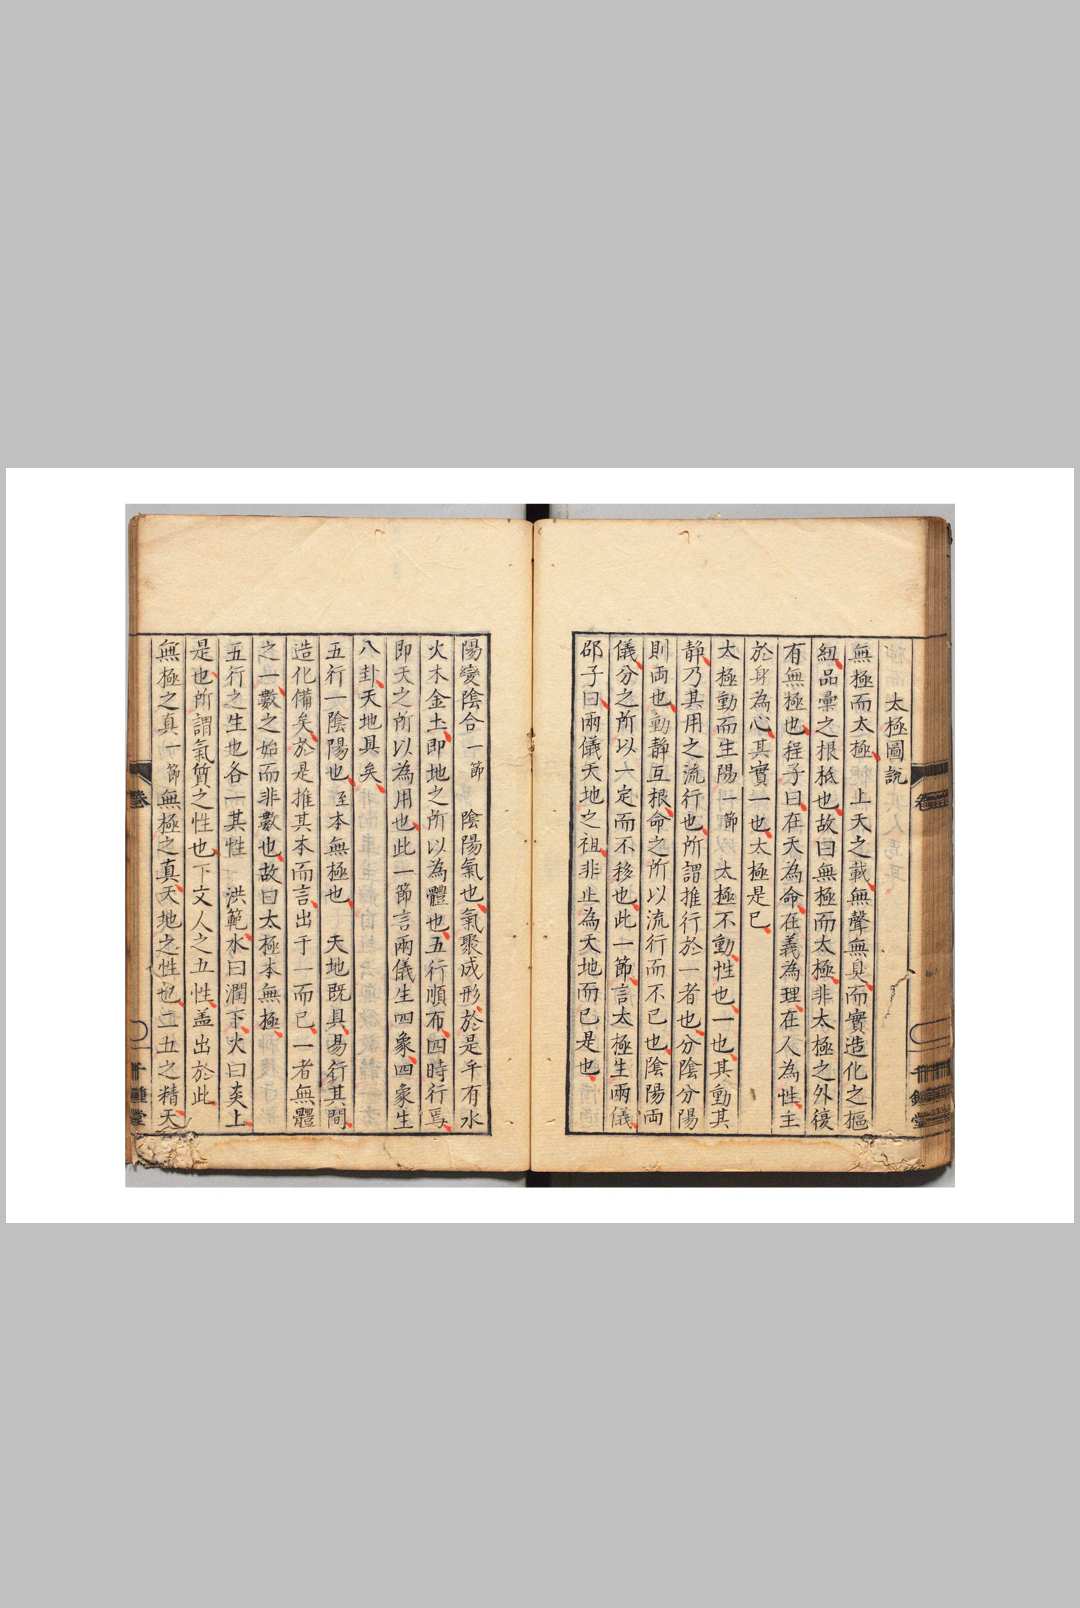 太極圖說
無極而太極上天之載無聲無臭而實造化之樞
紐品彙之根柢也故曰無極而太極非太極之外復
有無極也程子曰在天為命在義為理在人為性主
於身為心其實一也太極是已
太極動而生陽一節 太極不動性也一也其動其
静乃其用之流行也所謂推行於一者也分陰分陽
則両也動静互根命之所以流行而不已也陰陽両
儀分之所以一定而不移也此一節言太極生兩儀
邵子曰兩儀天地之祖非止為天地而已是也
陽變陰合一節 陰陽氣也氣聚成形於是乎有水
火木金土即地之所以為體也五行順布四時行焉
即天之所以為用也此一節言兩儀生四象四象生
八卦天地具矣
五行一陰陽也至本無極也 天地既具易行其間
造化備矣於是推其本而言出于一而已一者無體
之一數之始而非數也故曰太極本無極
五行之生也各一其性 洪範水曰潤下火曰炎上
是也所謂氣質之性也下文人之五性盖出於此
無極之真一節無極之真天地之性也二五之精天
卷
千鍾堂
卷
千鍾堂